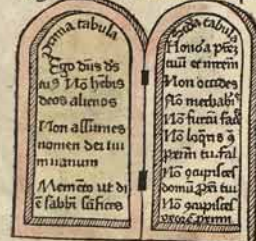 Prima tabula
Ego dn̄s ds
tu9 No hēbis
deos alienos
Non assumes
nomen dei tui
in uanum
Memēto ut di
ē sabbī scīfices
Sc̄da tabula
Honoꝛa pr̄ez
tuū et mr̄em
Non occides
No mechab̄is
No furtū fac̄
No loq̄ris 9
tu. fal
No 9cupisces
domū tui
No 9cupisces